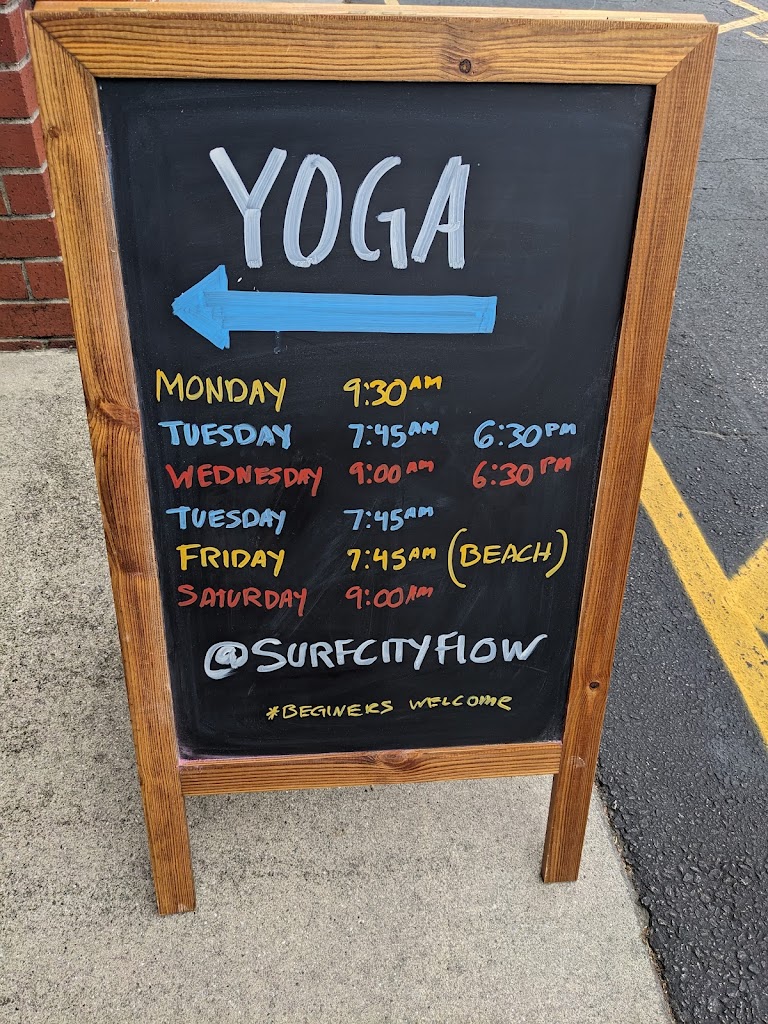 YOGA
MONDAY 9:30AM
TUESDAY 7:45AM 6:30PM
WEDNESDAY 9:00AM 6:30PM
TUESDAY 7:45AM
FRIDAY 7:45AM (BEACH)
SATURDAY 9:00AM
@SURFCITYFLOW
*BEGINERS WELCOME